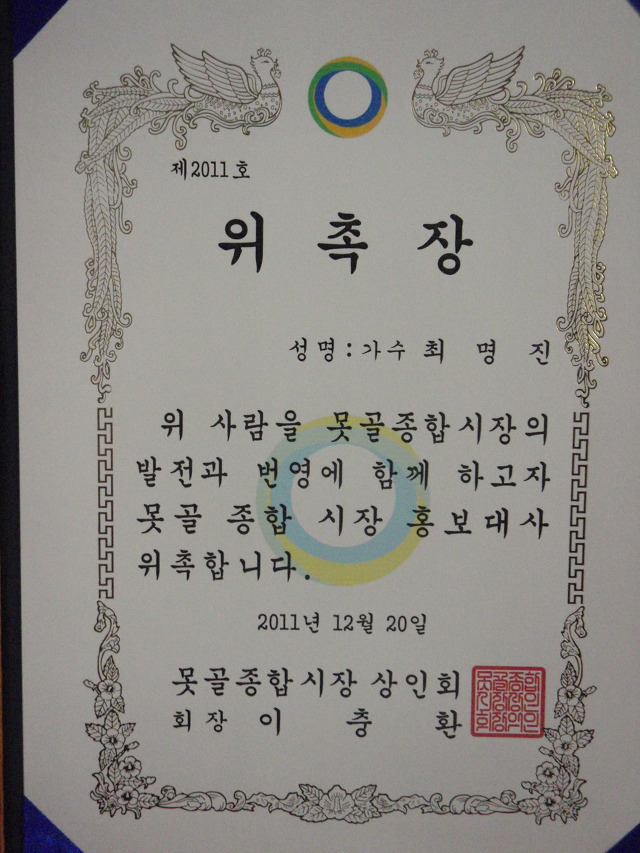 제2011호
위 촉 장
성명:가수 최 명 진
위 사람을 못골종합시장의
발전과 번영에 함께 하고자
못골 종합 시장 홍보대사
위촉합니다.
2011년 12월 20일
못골종합시장 상인회
회장 이 충 환